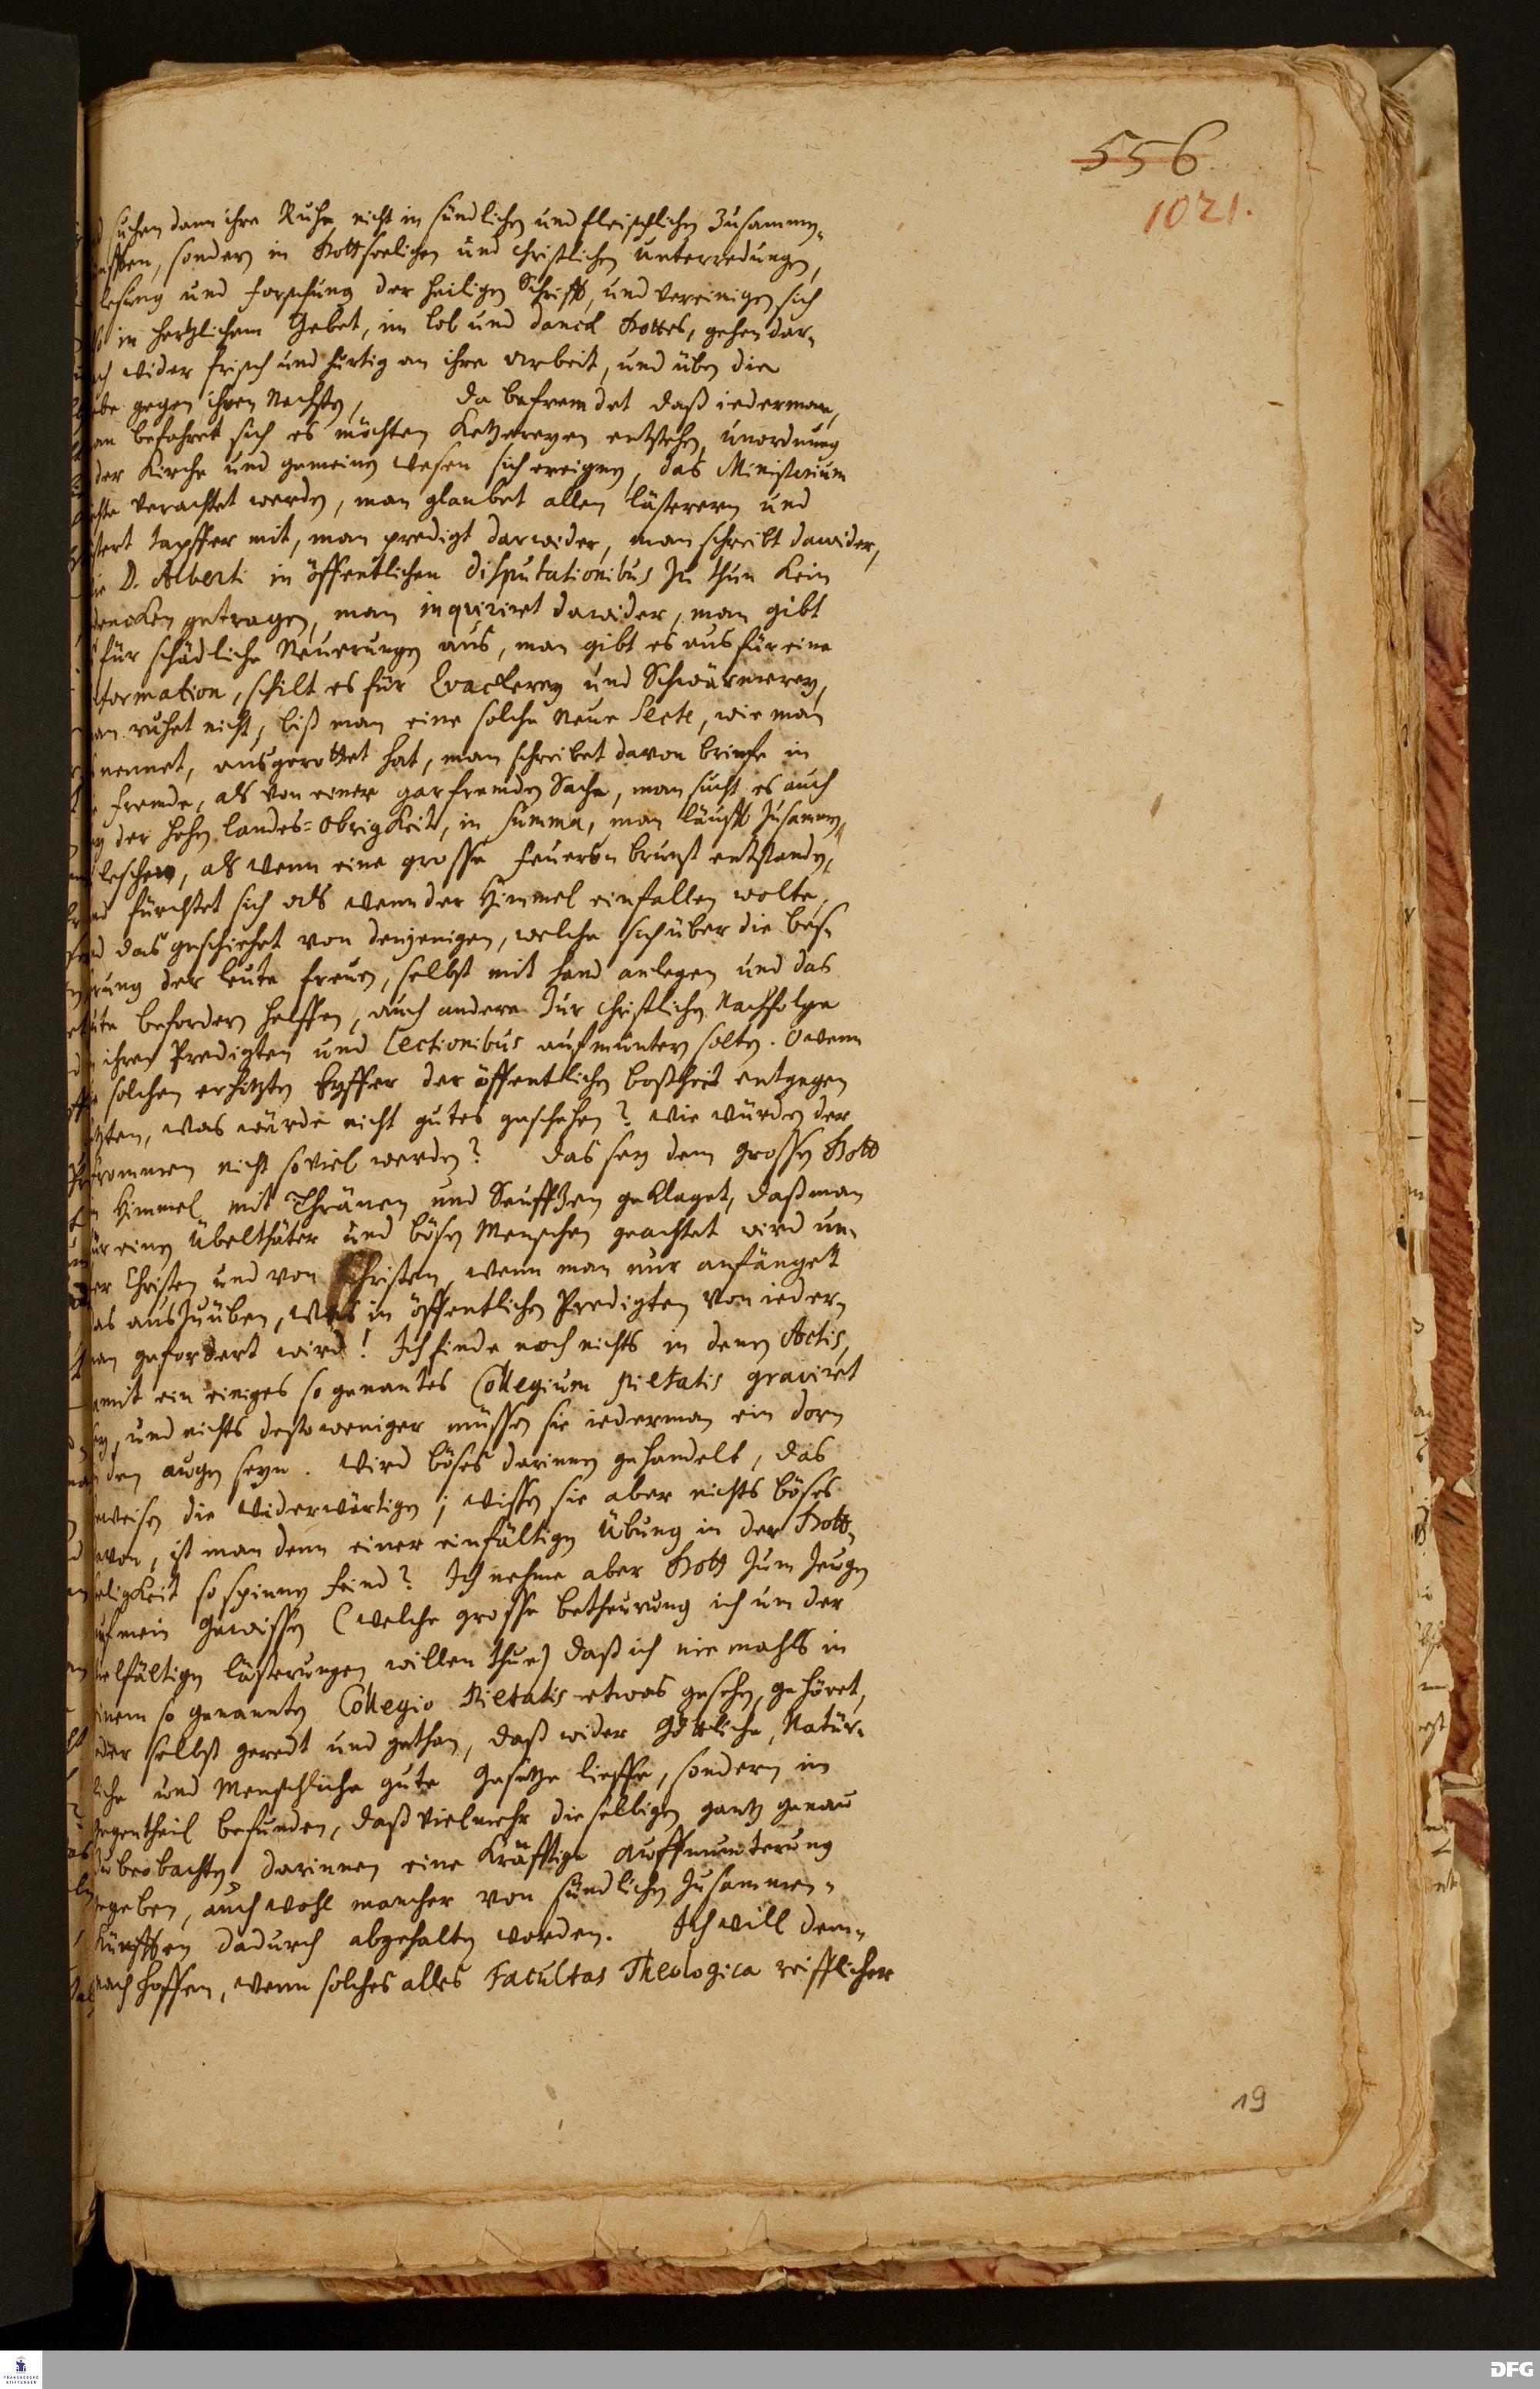 556
1021.
suchen dann ihre Ruhe nicht in sündlichen und fleischlichen Zusammen-
künfften, sondern in Gottseelichen und christlichen unterredungen,
lesung und forschung der heiligen Schrifft, und vereinigen sich
in hertzlichem Gebet, im lob und danck Gottes, gehen dar-
nach wider frisch und hurtig an ihre arbeit, und üben die
liebe gegen ihren Nechsten, Da befremdet daß iederman,
man befahret sich es möchten Ketzereyen entstehen, unordnung
der Kirche und gemeinen wesen sich ereignen, das Ministerium
verachtet werden, man glaubet allen lästerern und
lästert tapffer mit, man predigt darwider, man schreibt dawider,
wie D. Alberti in öffentlichen disputationibus zu thun kein
bedencken getragen, man inqviriret dawider, man gibt
für schädliche Neuerungen aus, man gibt es aus für eine
formation, schilt es für Qvackerey und Schwärmerey,
man ruhet nicht, biß man eine solche Neue Secte, wie man
nennet, ausgerottet hat, man schreibet davon briefe in
fremde, als von einer gar fremden Sache, man sucht es auch
der hohen landes=Obrigkeit, in summa, man läufft zusammen,
leschen, als wenn eine grosse feuersbrunst entstanden,
und fürchtet sich als wenn der Himmel einfallen wolte,
und das geschiehet von denjenigen, welche sich über die bes-
serung der leute freuen, selbst mit hand anlegen und das
gute befordern helffen, auch andere zur christlichen Nachfolge
in ihren Predigten und Lectionibus aufmuntern solten. O wenn
solchen erhitzten Eyffer der öffentlichen boßheit entgegen
setzten, was würde nicht gutes geschehen? wie würden der
Frommen nicht so viel werden? Das sey dem grossen Gott
Himmel mit Thränen und Seufftzen geklaget, daß man
für einen Übelthäter und bösen Menschen geachtet wird un-
ter Christen und von Christen, wenn man nur anfänget
das auszuüben, was in öffentlichen Predigten von ieder-
man gefordert wird! Ich finde noch nichts in denen Actis,
womit ein einiges so genantes Collegium Pietatis graviret
sey, und nichts destoweniger müssen sie iederman ein dorn
den augen seyn. Wird böses darinnen gehandelt, das
beweisen die widerwärtigen; wissen sie aber nichts böses
davon, ist man denn einer einfältigen Übung in der Gott-
seligkeit so spinnen feind? Ich nehme aber Gott zum zeugen
auf mein Gewissen (welche grosse betheurung ich um der
vielfältigen lästerungen willen thue) daß ich niemahls in
einem so genannten Collegio Pietatis etwas gesehen, gehöret,
oder selbst geredt und gethan, daß wider Göttliche, Natür-
liche und Menschliche gute Gesetze lieffe, sondern im
Gegentheil befunden, daß vielmehr dieselbigen gantz genau
zu beobachten, darinnen eine kräfftige auffmunterung
gegeben, auch wohl mancher von sündlichen zusammen-
künfften dadurch abgehalten worden. Ich will dem-
nach hoffen, wenn solches alles Facultas Theologica reifflicher
19
FRANCKESCHE
STIFTUNGEN
DFG